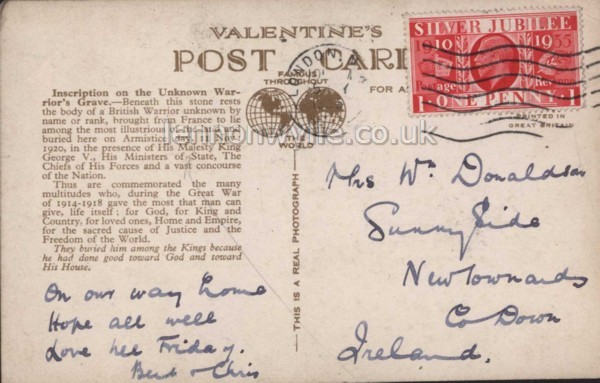 VALENTINE'S
POST CARD
FAMOUS
THROUGHOUT
THE
WORLD
FOR
LONDON
SILVER JUBILEE
1910 1935
Postage Revenue
1 ONE PENNY 1
PRINTED IN
GREAT BRITAIN
Inscription on the Unknown War-
rior's Grave.—Beneath this stone rests
the body of a British Warrior unknown by
name or rank, brought from France to lie
among the most illustrious
buried here on Armistice Day, 11 Nov.
1920, in the presence of His Majesty King
George V., His Ministers of State, The
Chiefs of His Forces and a vast concourse
of the Nation.
Thus are commemorated the many
multitudes who, during the Great War
of 1914-1918 gave the most that man can
give, life itself; for God, for King and
Country, for loved ones, Home and Empire,
for the sacred cause of Justice and the
Freedom of the World.
They buried him among the Kings because
he had done good toward God and toward
His House.
THIS IS A REAL PHOTOGRAPH
On our way home
Hope all well
Love Friday.
& Chris
Mrs Wm Donaldson
Sunny Side
Newtownards
Co Down
Ireland.